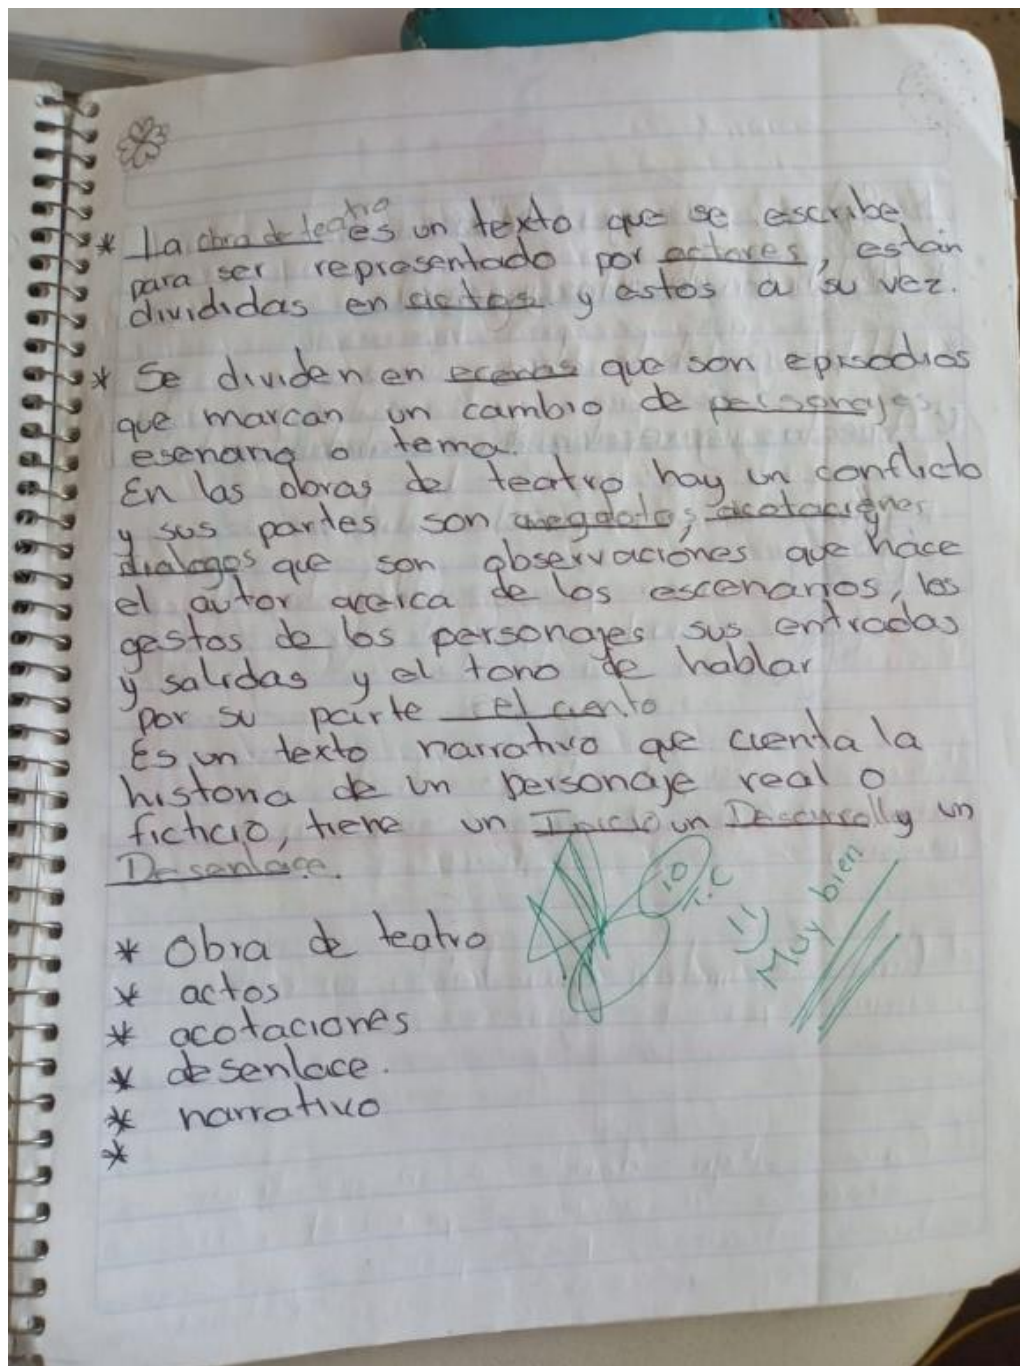 * La obra de teatro es un texto que se escribe
para ser representado por actores, están
divididas en actos y estos a su vez.
* Se dividen en ecenas que son episodios
que marcan un cambio de personajes,
esenario o tema.
En las obras de teatro hay un conflicto
y sus partes son acotaciones
dialogos que son observaciones que hace
el autor acerca de los escenarios, los
gestos de los personajes sus entradas
y salidas y el tono de hablar
por su parte el cuento
Es un texto narrativo que cuenta la
historia de un personaje real o
ficticio, tiene un Inicio un Desarrollo y un
Desenlace.
* Obra de teatro
* actos
* acotaciones
* desenlace.
* narrativo
*
10
T.C
Muy bien